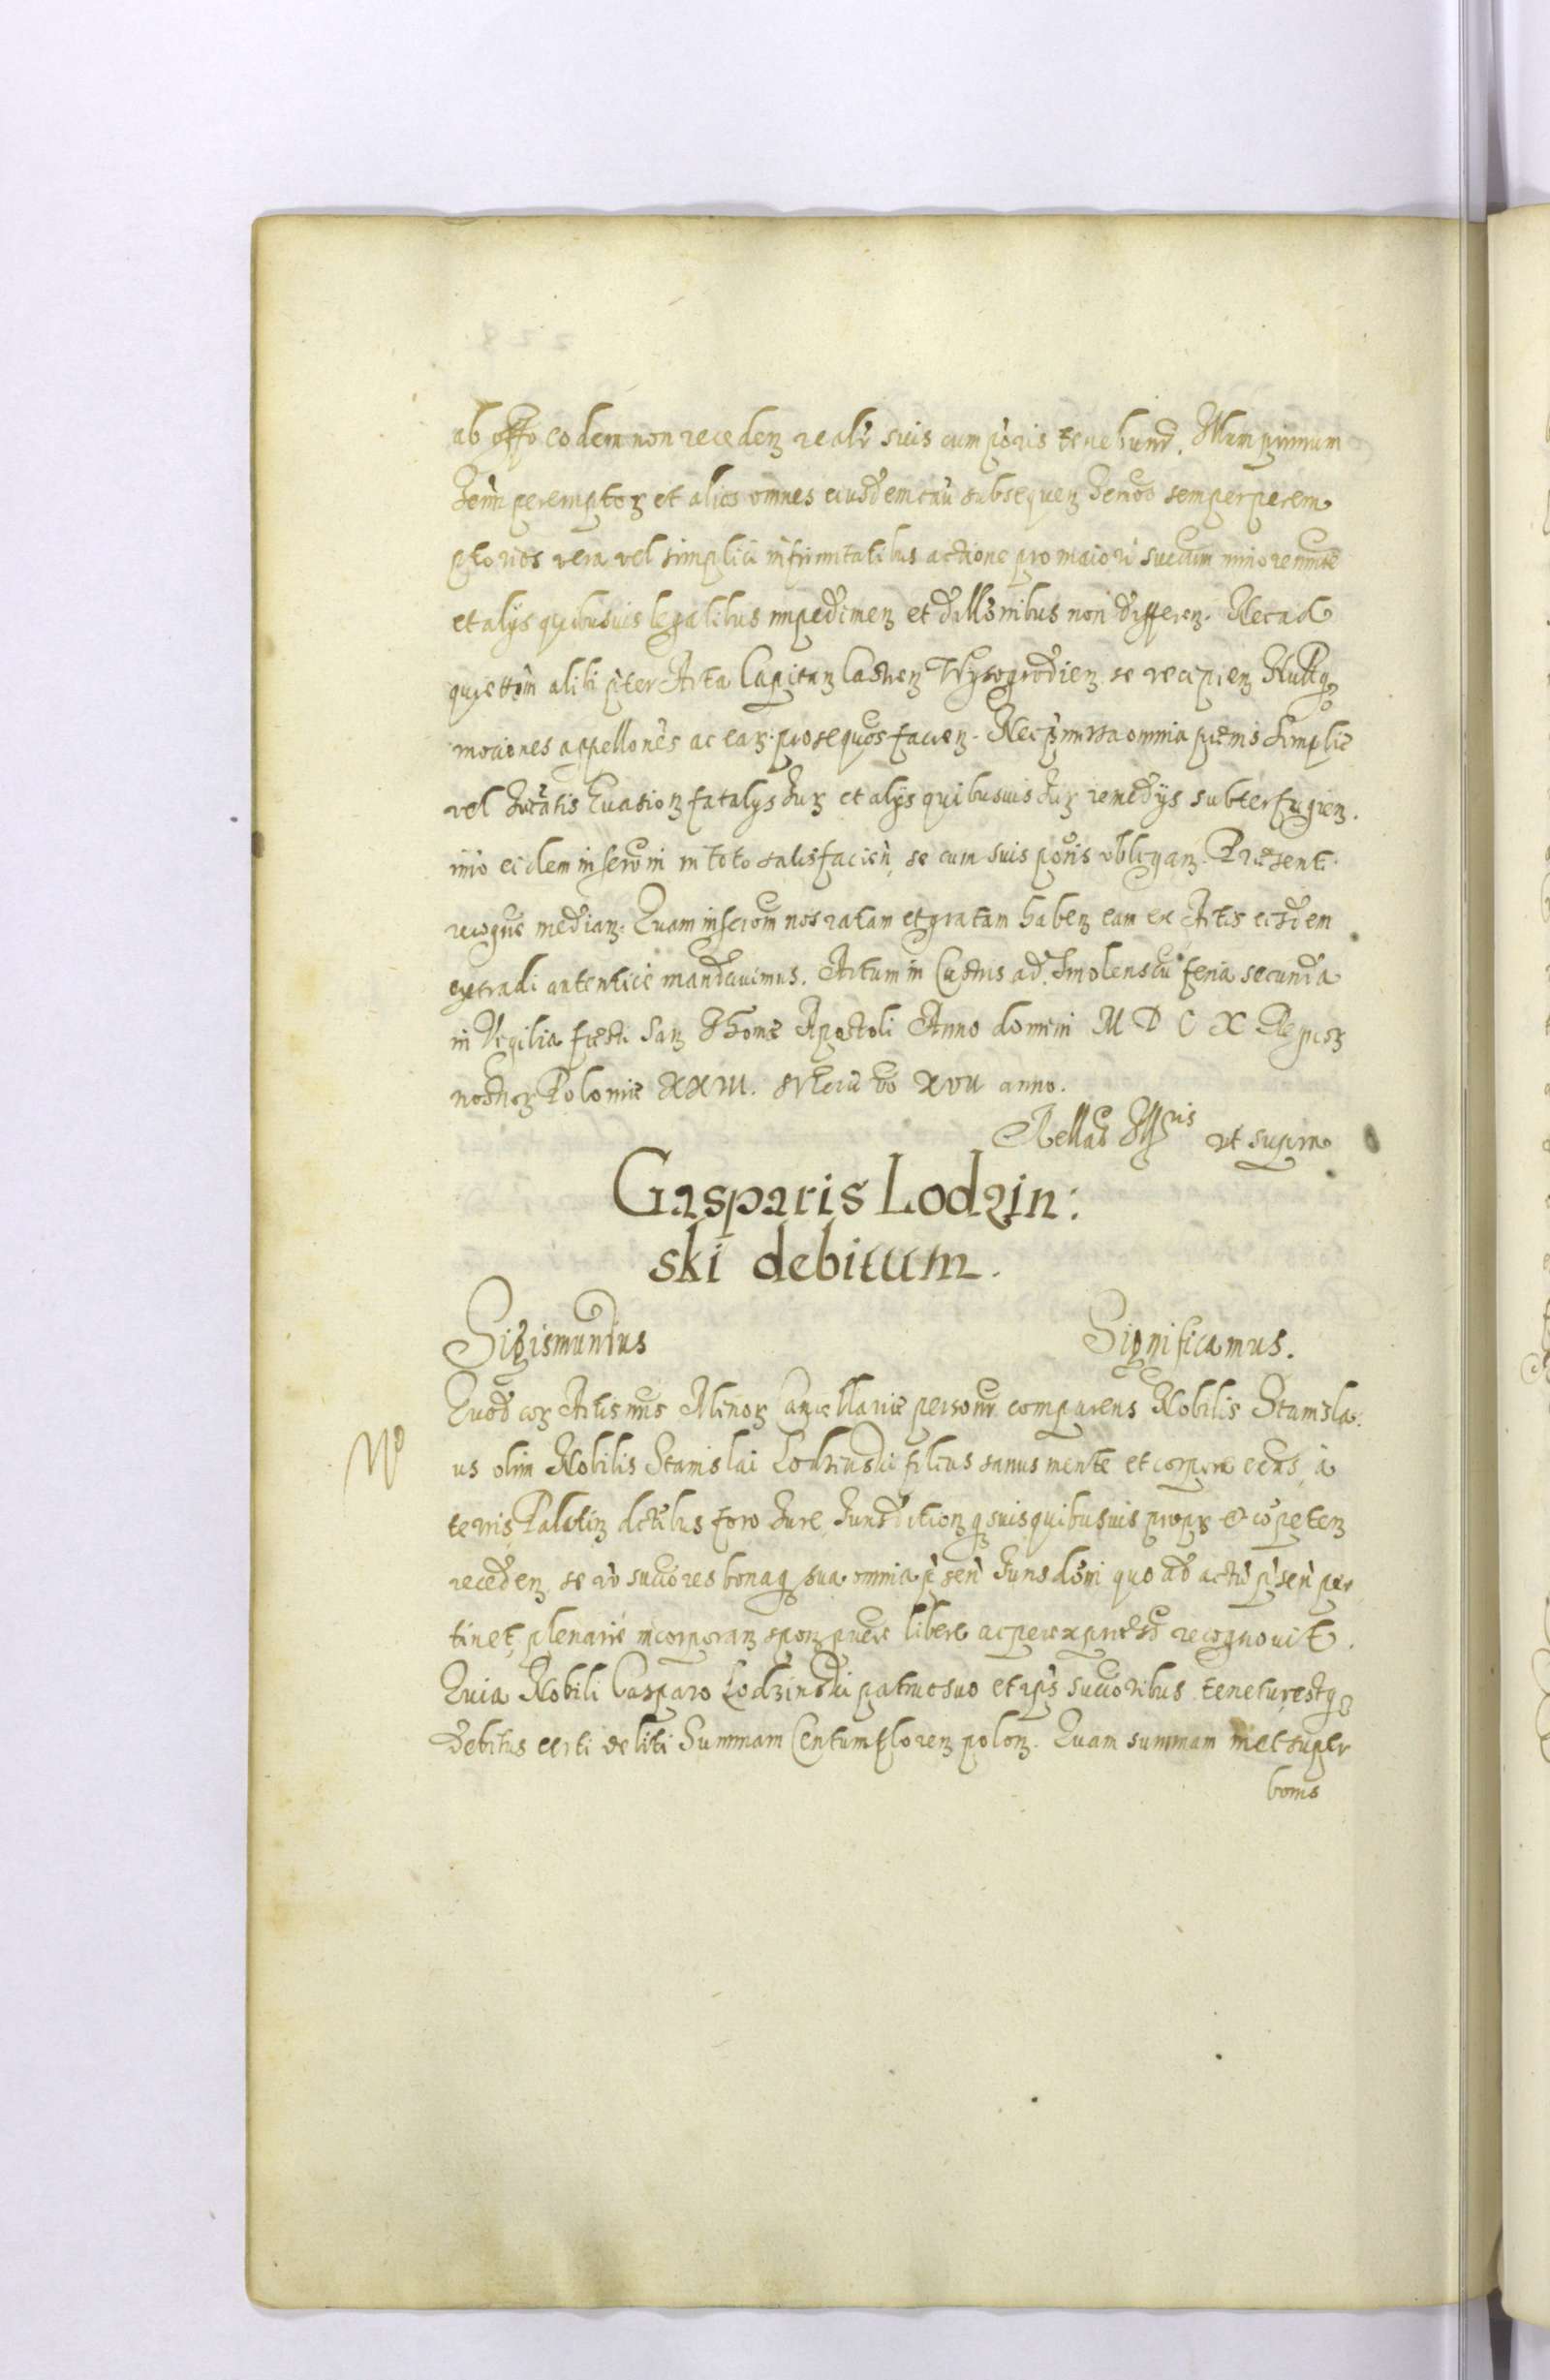 ab offo eodem non receden realr suis cum poris tenebunt. Illum primum
termi perempton et alios omnes eiusdem cau subsequen termos semper perem
ptorios vera vel simplici infirmitatibus actione pro maiori suctum minoremute
et alijs quibusuis legalibus impedimen et dillonibus non differen. Nec ad
quiettom alibi preter Acta Capitan Castren Wyszogrodien se recipien Nullasq
mociones appellones ac ear prosequtos facien. Nec primissa omnia premis simplic
vel Jucatis Euasion fatalys Jur et alijs quibusuis Jur remedijs subterfugien.
imo eidem inscroni in toto satisfacien se cum suis poris obligan. Præsenti
recogne median. Quam inscrom nos ratam et gratam haben eam ex Actis eisdem
extradi autentice mandauimus. Actum in Castris ad Smolenscu feria secunda
in Vigilia festi San Thomæ Apostoli Anno domini M D C X Regnor
nostror Poloniæ XXIII. Sueciæ vo XVII anno.
Rellao Illris ut supra
Gasparis Lodzin:
ski debitum.
Sigismundus Significamus.
Quod cor Actis nris Minor Cancellariæ personr comparens Nobilis Stanisla
us olim Nobilis Stanislai Lodzinski filius sanus mente et corpore exns, a
terris, Palatin dictibus foro Jure, Jurisdition q suis quibusuis propr et copeten
receden, se vo succores bonaq sua omnia prsen Jurisdoni quo ad actu prsen per
tinet, plenarie incorporan spon puere libere ac per expressu recognouit.
Quia Nobili Casparo Lodzinski patruo suo et ips succoribus tenetur, estq
debitus certi debiti Summam Centum floren polon. Quam summam met super
bonis